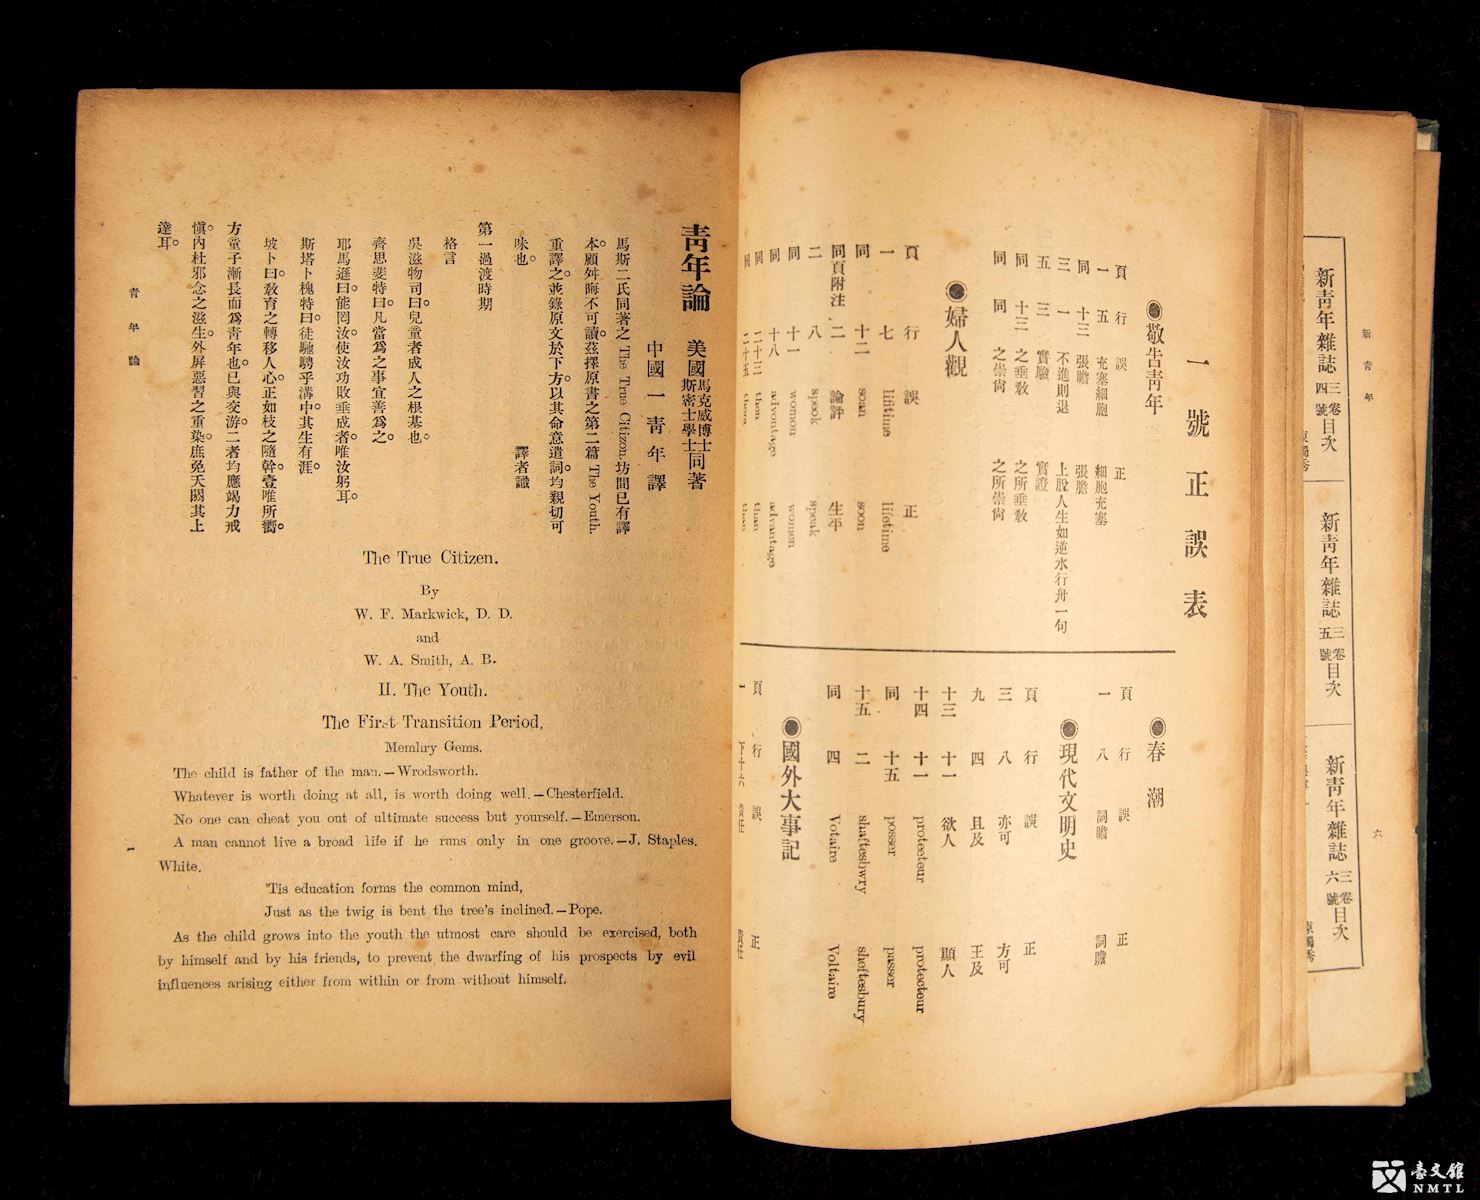 新青年
六
新青年雜誌三卷四號目次
新青年雜誌三卷五號目次
新青年雜誌三卷六號目次
一號正誤表
◉敬告青年
頁 行 誤 正
一 五 充塞細胞 細胞充塞
同 十三 張膽 張膽
三 一 不進則退 上脫人生如逆水行舟一句
五 三 實驗 實證
同 十三 之垂敎 之所垂敎
同 同 之崇尙 之所崇尙
◉婦人觀
頁 行 誤 正
一 七 lifitime lifetime
同 十二 soan soon
同頁附注 二 論評 生平
二 八 spook speak
同 十一 womon women
同 十八 advontage advantage
同 二十三 then than
同 二十五 then than
◉春潮
頁 行 誤 正
一 八 詞瞻 詞贍
◉現代文明史
頁 行 誤 正
三 八 亦可 方可
九 四 且及 王及
十三 十一 欲人 顯人
十四 十一 protecteur protecteur
同 十五 posser passer
十五 二 shaftesbwry sheftesbury
同 四 Votaire Voltaire
◉國外大事記
頁 行 誤 正
一 下十六 責任 責任
靑年論
美國馬克威博士斯密士學士同著
中國一靑年譯
馬斯二氏同著之 The True Citizon. 坊間已有譯
本。顧舛晦不可讀。茲擇原書之第二篇 The Youth.
重譯之。並錄原文於下方。以其命意遣詞。均親切可
味也。 譯者識
第一過渡時期
格言
吳滋物司曰。兒童者成人之根基也。
齊思斐特曰。凡當爲之事宜善爲之。
耶馬遜曰。能罔汝。使汝功敗垂成者。唯汝躬耳。
斯塔卜槐特曰。徒馳騁乎溝中。其生有涯。
坡卜曰。敎育之轉移人心。正如枝之隨幹。壹唯所嚮。
方童子漸長而爲靑年也。己與交游。二者均應竭力戒
愼。內杜邪念之滋生。外屏惡習之重染。庶免夭閼其上
達耳。
The True Citizen.
By
W. F. Markwick, D. D.
and
W. A. Smith, A. B.
II. The Youth.
The First Transition Period,
Memlury Gems.
The child is father of the man.—Wrodsworth.
Whatever is worth doing at all, is worth doing well.—Chesterfield.
No one can cheat you out of ultimate success but yourself.—Emerson.
A man cannot live a broad life if he runs only in one groove.—J. Staples.
White.
'Tis education forms the common mind,
Just as the twig is bent the tree's inclined.—Pope.
As the child grows into the youth the utmost care should be exercised, both
by himself and by his friends, to prevent the dwarfing of his prospects by evil
influences arising either from within or from without himself.
青年論
一
臺文館
NMTL